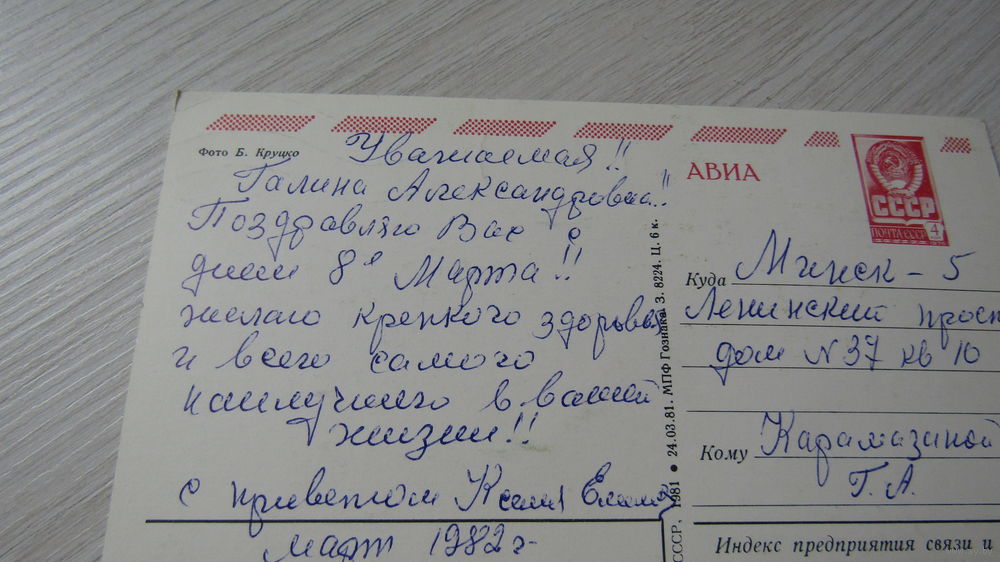 Фото Б. Круцко
Уважаемая!!
Галина Александровна!!
Поздравляю Вас с
днем 8е Марта!!
желаю крепкого здоровья
и всего самого
наилучшего в вашей
жизни!!
с приветом Ксения
Март 1982 г.
СССР, 1981 • 24.03.81. МПФ Гознака. З. 8224. Ц. 6 к.
АВИА
СССР
ПОЧТА СССР 4
Куда Минск - 5
Ленинский просп
дом N 37 кв 10
Кому Карамазиной
Г. А.
Индекс предприятия связи и